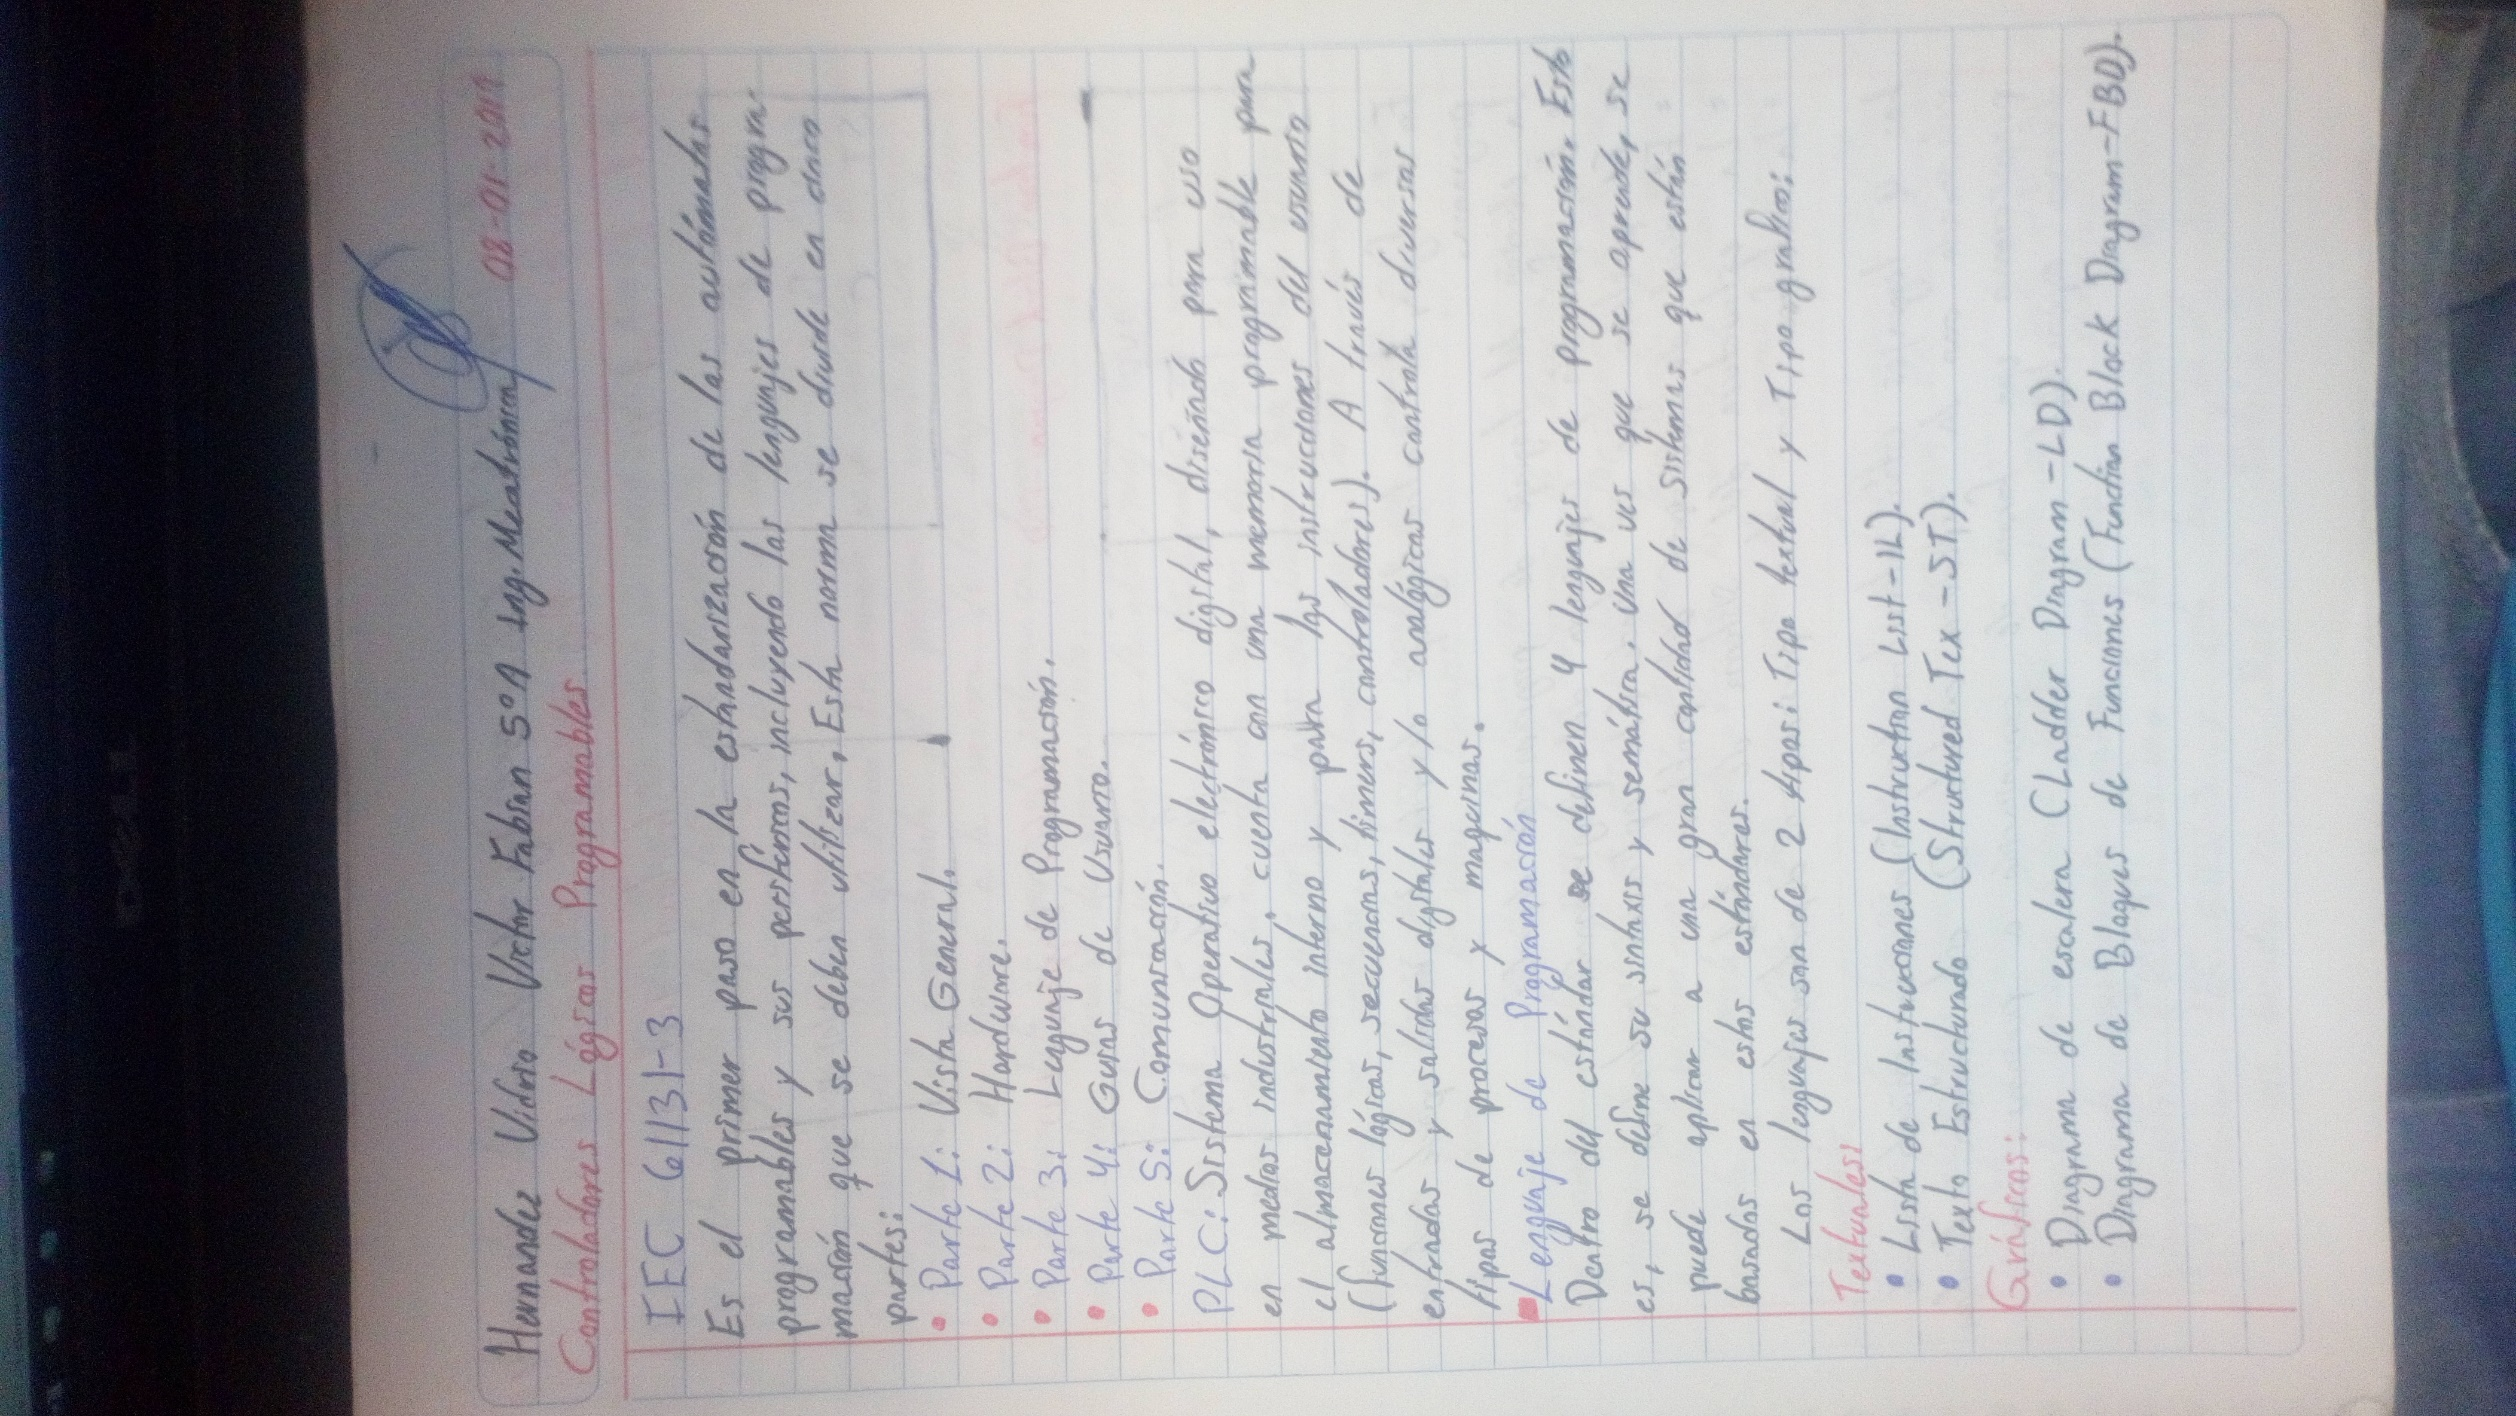 Hernandez Vidrio Victor Fabian 5°A Ing. Mecatrónica
08-01-2019
Controladores Lógicos Programables
IEC 61131-3
Es el primer paso en la estandarización de los autómatas
programables y sus periféricos, incluyendo los lenguajes de progra-
mación que se deben utilizar, Esta norma se divide en cinco
partes:
• Parte 1: Vista General.
• Parte 2: Hardware.
• Parte 3: Lenguaje de Programación.
• Parte 4: Guías de Usuario.
• Parte 5: Comunicación.
PLC: Sistema Operativo electrónico digital, diseñado para uso
en medios industriales, cuenta con una memoria programable para
el almacenamiento interno y para las instrucciones del usuario
(funciones lógicas, secuencias, timers, controladores). A través de
entradas y salidas digitales y/o analógicas controla diversos
tipos de procesos y maquinas.
Lenguaje de Programación
Dentro del estándar se definen 4 lenguajes de programación. Esto
es, se define su sintaxis y semántica, una ves que se aprende, se
puede aplicar a una gran cantidad de sistemas que están
basados en estos estándares.
Los lenguajes son de 2 tipos: Tipo textual y Tipo grafico:
Textuales:
• Lista de Instrucciones (Instruction List-IL).
• Texto Estructurado (Structured Tex-ST).
Gráficos:
• Diagrama de escalera (Ladder Diagram-LD).
• Diagrama de Bloques de Funciones (Function Block Diagram-FBD).
DELL